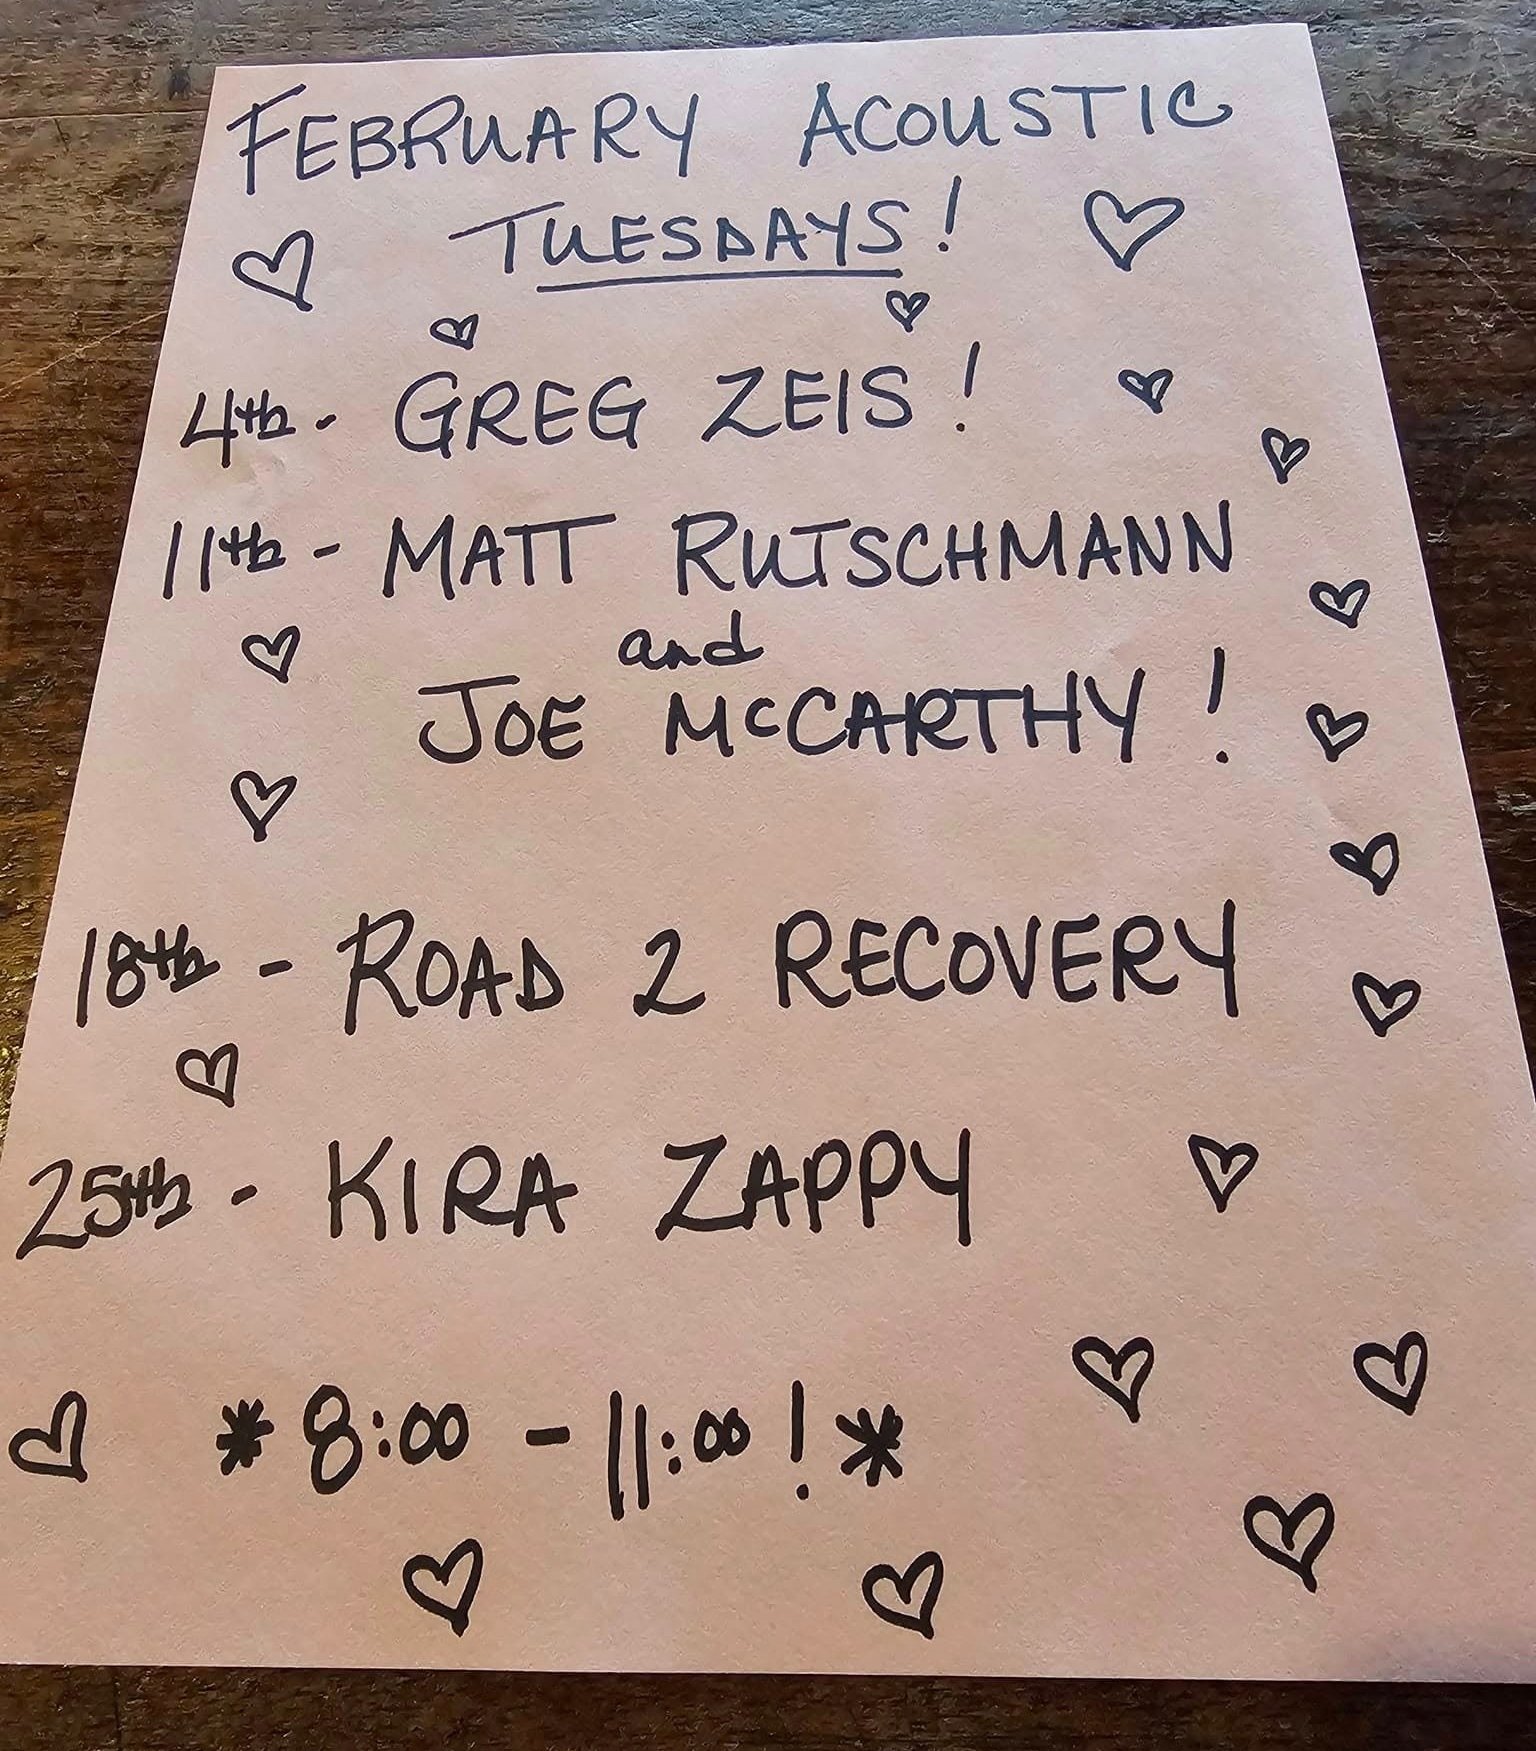 FEBRUARY ACOUSTIC
TUESDAYS!
4th - GREG ZEIS!
11th - MATT RUTSCHMANN
and
JOE McCARTHY!
18th - ROAD 2 RECOVERY
25th - KIRA ZAPPY
*8:00 - 11:00!*